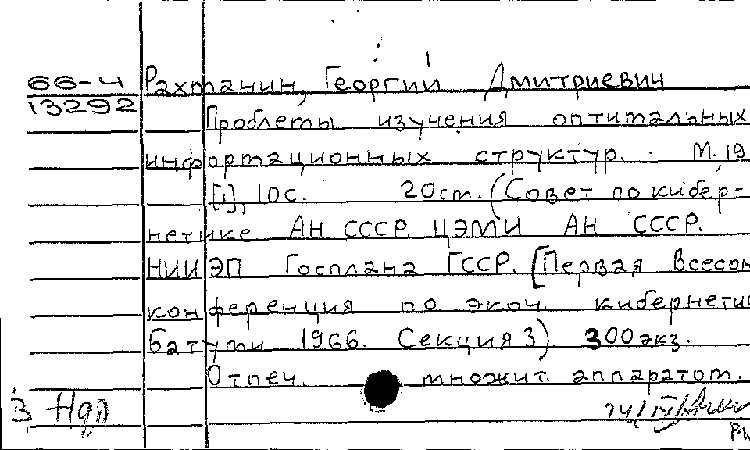 66-4 Рахманин, Георгий Дмитриевич
13292
Проблемы изучения оптимальных
информационных структур. М. 19
[1], 10с. 20см. (Совет по кибер-
нетике АН СССР. ЦЭМИ АН СССР.
НИИЭП Госплана ГССР. [Первая Всесоюз
конференция по экон. кибернетик
Батуми 1966. Секция 3) 300 экз.
Отпеч. множит. аппаратом.